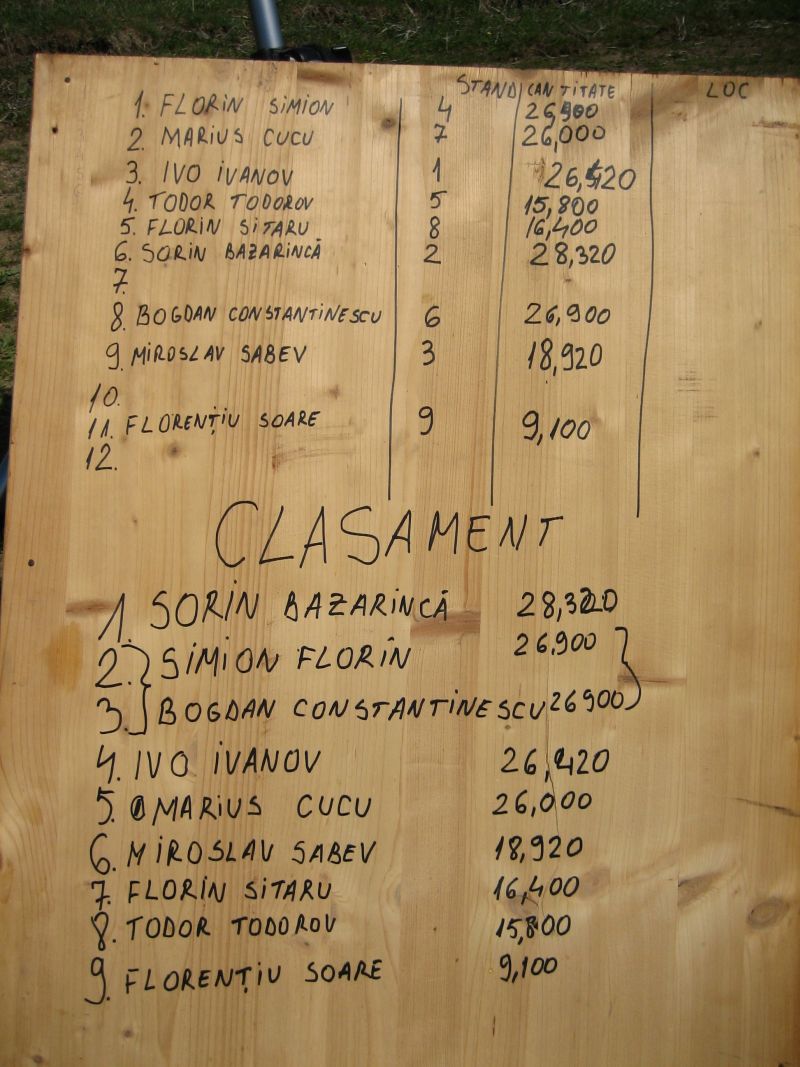 STAND CANTITATE LOC
1. FLORIN SIMION 4 26,900
2. MARIUS CUCU 7 26,000
3. IVO IVANOV 1 26,420
4. TODOR TODOROV 5 15,800
5. FLORIN SITARU 8 16,400
6. SORIN BAZARINCĂ 2 28,320
7.
8. BOGDAN CONSTANTINESCU 6 26,900
9. MIROSLAV SABEV 3 18,920
10.
11. FLORENȚIU SOARE 9 9,100
12.
CLASAMENT
1. SORIN BAZARINCĂ 28,320
2. SIMION FLORIN 26,900
3. BOGDAN CONSTANTINESCU 26900
4. IVO IVANOV 26,420
5. MARIUS CUCU 26,000
6. MIROSLAV SABEV 18,920
7. FLORIN SITARU 16,400
8. TODOR TODOROV 15,800
9. FLORENȚIU SOARE 9,100